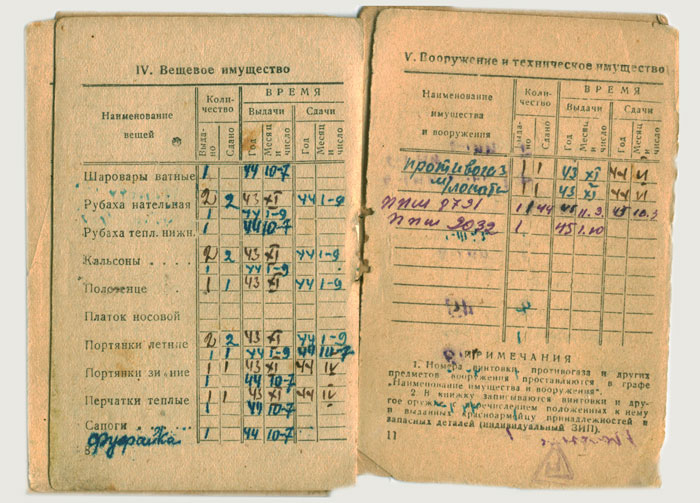 IV. Вещевое имущество
Наименование вещей
Количество
ВРЕМЯ
Выдачи
Сдачи
Выдано
Сдано
Год
Месяц и число
Год
Месяц и число
Шаровары ватные 1 44 10-7
Рубаха нательная 2 2 43 XI 44 1-9
1 44 1-9
Рубаха тепл. нижн. 1 44 10-7
Кальсоны . . . . 2 2 43 XI 44 1-9
1 44 1-9
Полотенце 1 1 43 XI 44 1-9
Платок носовой
Портянки летние 2 2 43 XI 44 1-9
1 1 44 1-9 44
Портянки зимние 1 1 43 XI 44 IV
1 44 10-7
Перчатки теплые 1 1 43 XI 44 IV
1 44 10-7
Сапоги . . . . .
фуфайка 1 44 10-7
8
V. Вооружение и техническое имущество
Наименование имущества и вооружения
Количество
ВРЕМЯ
Выдачи
Сдачи
Выдано
Сдано
Год
Месяц и число
Год
Месяц и число
противогаз 1 1 43 XI 44
1 1 43 XI 44
ППШ 1
ППШ 2032 1 45 1.10
ПРИМЕЧАНИЯ
1. Номера винтовки, противогаза и других
предметов вооружения проставляются в графе
„Наименование имущества и вооружения".
2. В книжку записываются винтовки и дру-
гое оружие с перечислением положенных к нему
и выданных красноармейцу принадлежностей и
запасных деталей (индивидуальный ЗИП).
11